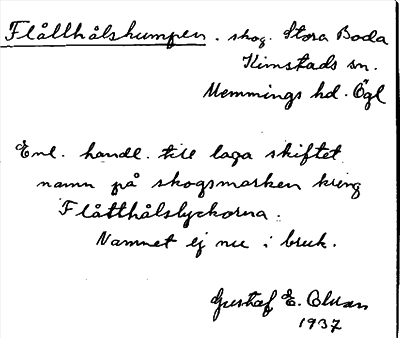 Flåtthålshumpen. skog. Stora Boda
Kimstads sn.
Memmings hd. Ögl
Enl. handl. till laga skiftet
namn på skogsmarken kring
Flåtthålslyckorna.
Namnet ej nu i bruk.
Gustaf E.
1937